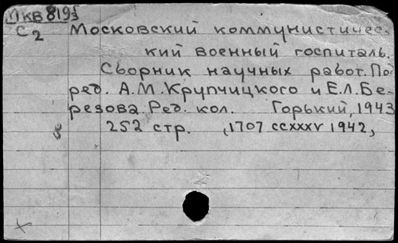 ПКВ 8195
С2 Московский коммунистичес-
кий военный госпиталь.
Сборник научных работ. По
ред. А.М. Крупчицкого и Е.Л. Бе-
резова. Ред. кол. Горький, 1943
252 стр. (1707 ссxxxv 1942)